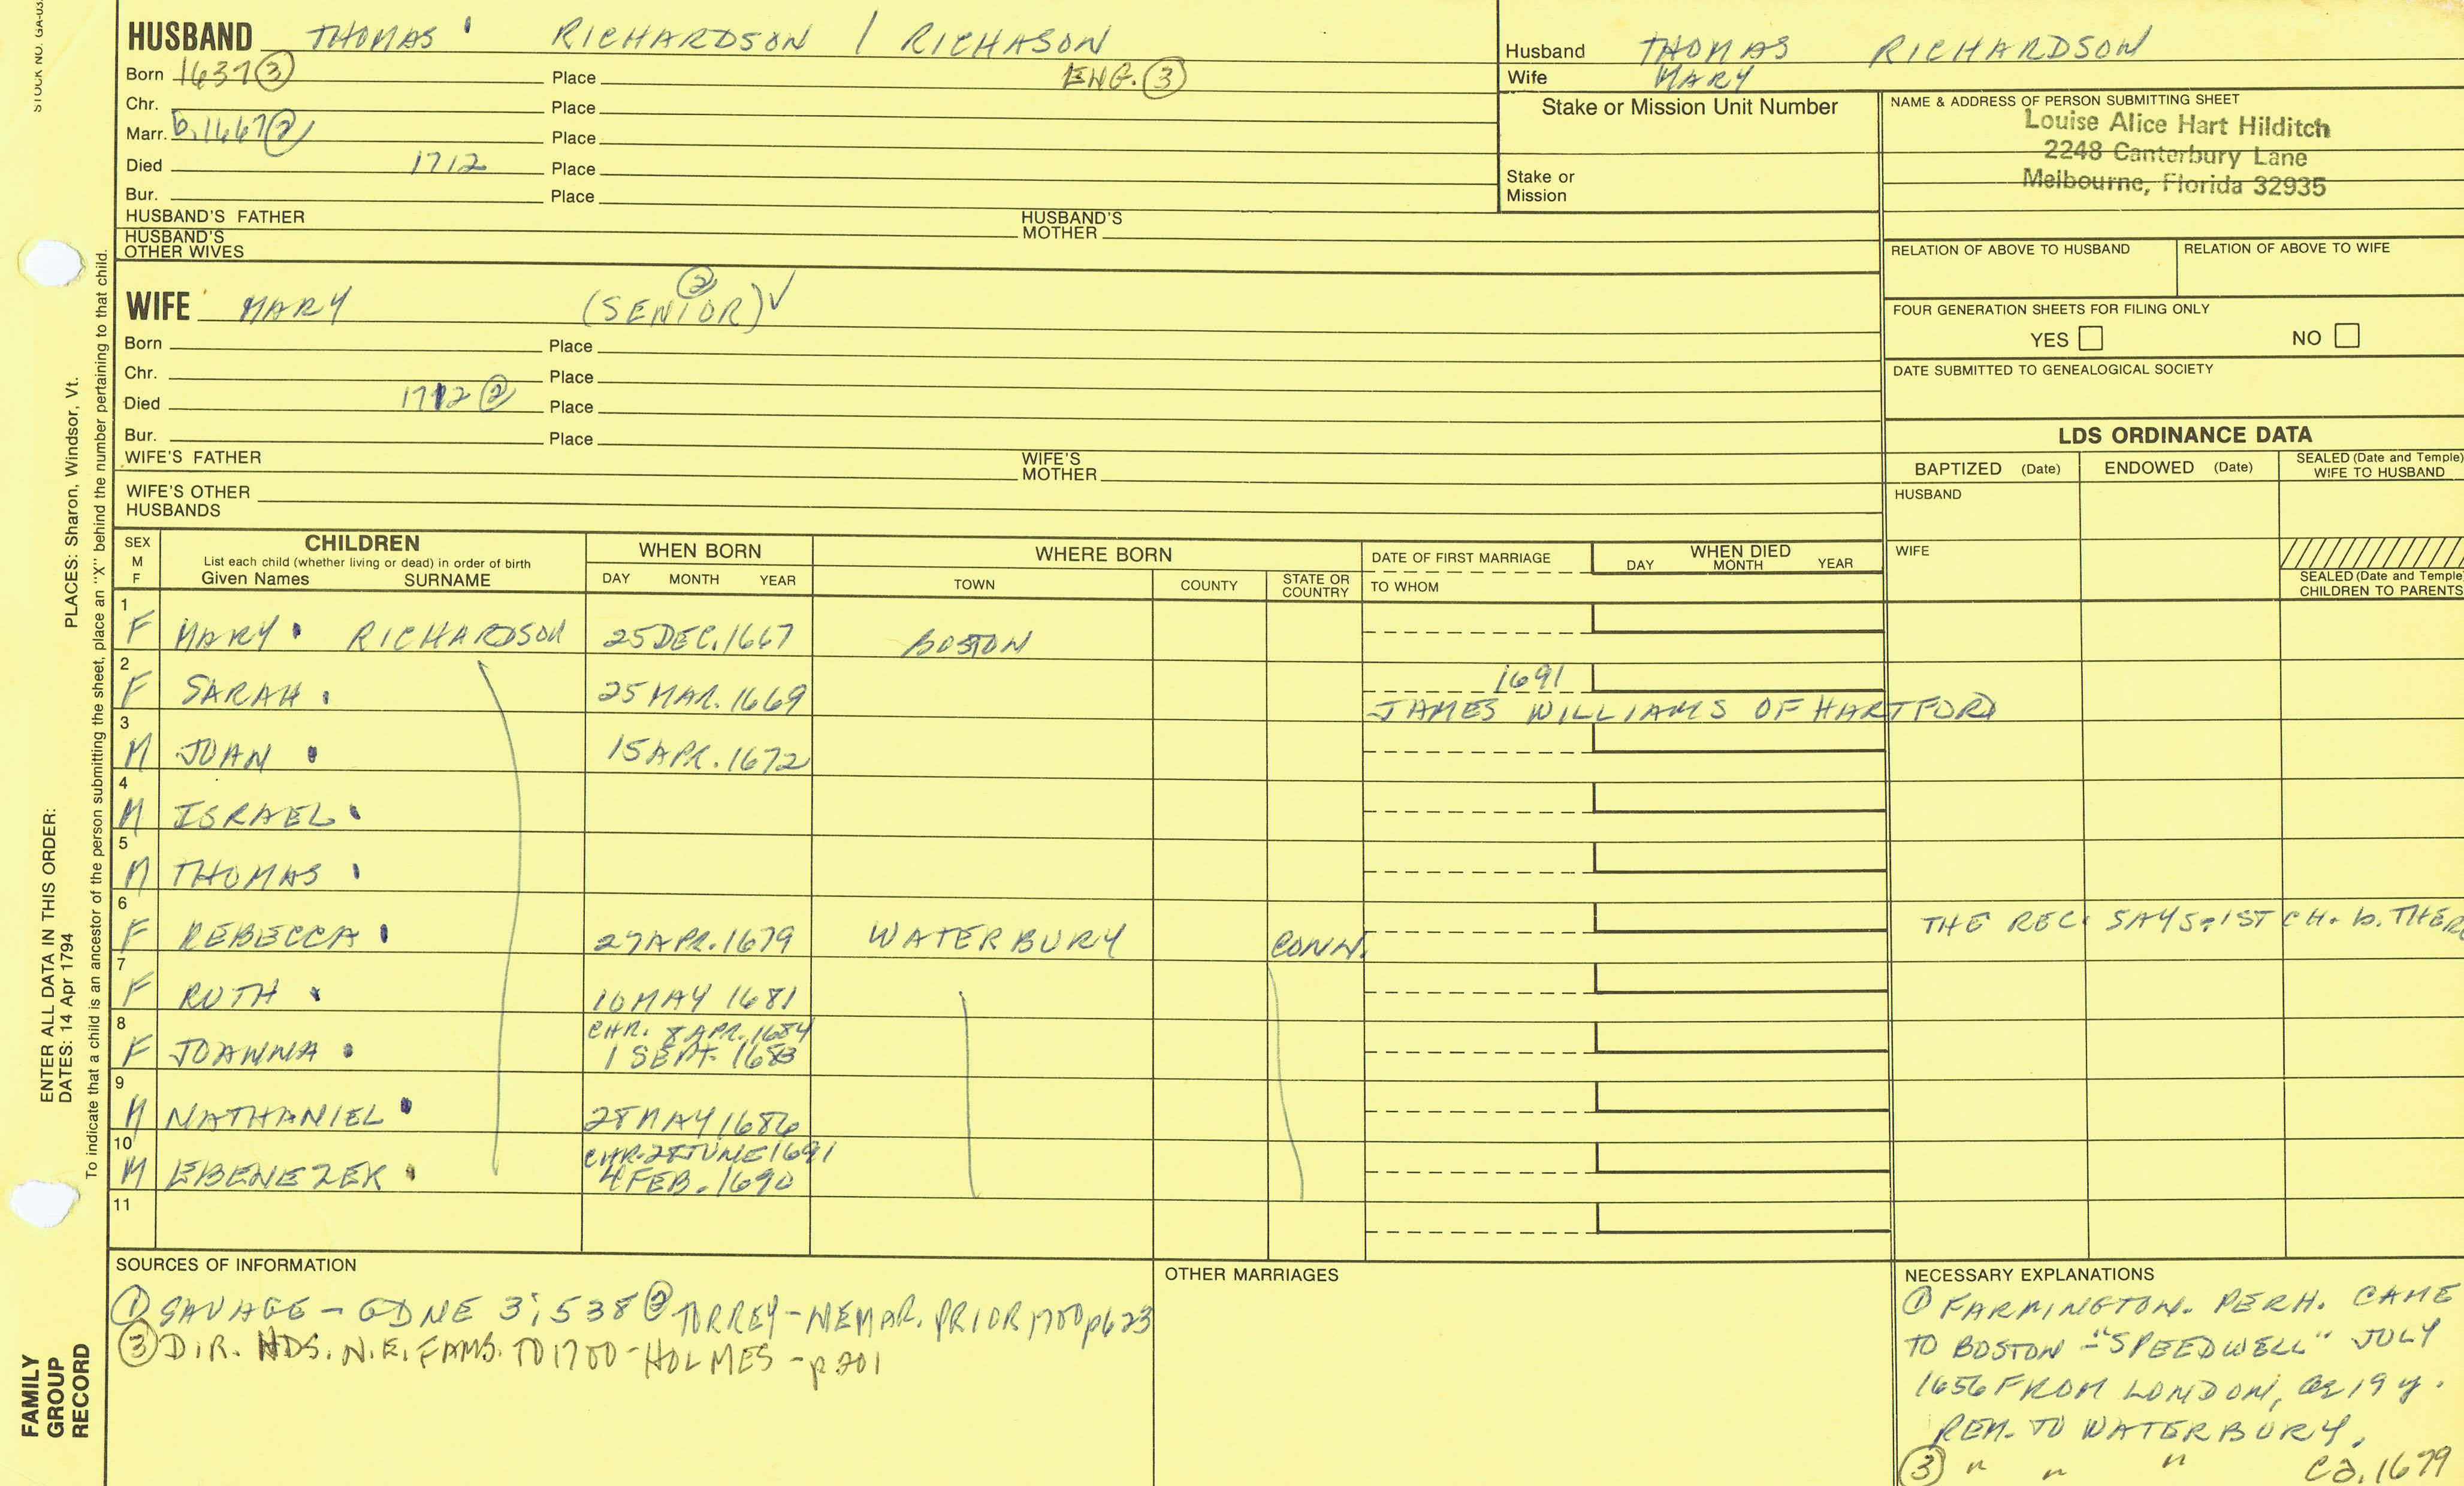 STOCK NO. GA-03
HUSBAND THOMAS RICHARDSON / RICHASON
Born 1637 ③ Place ENG. ③
Chr. Place
Marr. b. 1667 ② Place
Died 1712 Place
Bur. Place
HUSBAND'S FATHER HUSBAND'S MOTHER
HUSBAND'S OTHER WIVES
Husband THOMAS RICHARDSON
Wife MARY
Stake or Mission Unit Number
Stake or Mission
NAME & ADDRESS OF PERSON SUBMITTING SHEET
Louise Alice Hart Hilditch
2248 Canterbury Lane
Melbourne, Florida 32935
RELATION OF ABOVE TO HUSBAND RELATION OF ABOVE TO WIFE
FOUR GENERATION SHEETS FOR FILING ONLY
YES NO
DATE SUBMITTED TO GENEALOGICAL SOCIETY
WIFE MARY (SENIOR) ② ✓
Born Place
Chr. Place
Died 1712 ② Place
Bur. Place
WIFE'S FATHER WIFE'S MOTHER
WIFE'S OTHER HUSBANDS
LDS ORDINANCE DATA
BAPTIZED (Date) ENDOWED (Date) SEALED (Date and Temple) WIFE TO HUSBAND
HUSBAND
WIFE
SEALED (Date and Temple) CHILDREN TO PARENTS
SEX M F
CHILDREN
List each child (whether living or dead) in order of birth
Given Names SURNAME
WHEN BORN
DAY MONTH YEAR
WHERE BORN
TOWN COUNTY STATE OR COUNTRY
DATE OF FIRST MARRIAGE
TO WHOM
WHEN DIED
DAY MONTH YEAR
1 F MARY RICHARDSON 25 DEC. 1667 BOSTON
2 F SARAH 25 MAR. 1669 1691
JAMES WILLIAMS OF HARTFORD
3 M JOHN 15 APR. 1672
4 M ISRAEL
5 M THOMAS
6 F REBECCA 27 APR. 1679 WATERBURY CONN. THE REC. SAYS = 1ST CH. b. THERE
7 F RUTH 10 MAY 1681
8 F JOANNA CHR. 8 APR. 1684
1 SEPT. 1683
9 M NATHANIEL 28 MAY 1686
10 M EBENEZER CHR. 28 JUNE 1691
4 FEB. 1690
11
SOURCES OF INFORMATION
① SAVAGE - GDNE 3:538 ② TORREY - NEMAR. PRIOR 1700 p623
③ DIR. HDS. N.E. FAMS. TO 1700 - HOLMES - p201
OTHER MARRIAGES
NECESSARY EXPLANATIONS
① FARMINGTON. PERH. CAME
TO BOSTON - "SPEEDWELL" JULY
1656 FROM LONDON, ae 19 y.
REM. TO WATERBURY.
③ " " " ca. 1679
ENTER ALL DATA IN THIS ORDER:
DATES: 14 Apr 1794 PLACES: Sharon, Windsor, Vt.
To indicate that a child is an ancestor of the person submitting the sheet, place an "X" behind the number pertaining to that child.
FAMILY
GROUP
RECORD